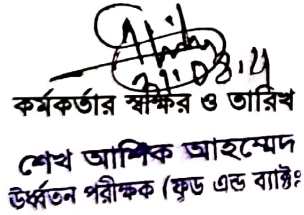 কর্মকর্তার স্বাক্ষর ও তারিখ
শেখ আশিক আহম্মেদ
উর্ধ্বতন পরীক্ষক (ফুড এন্ড ব্যাক্টঃ